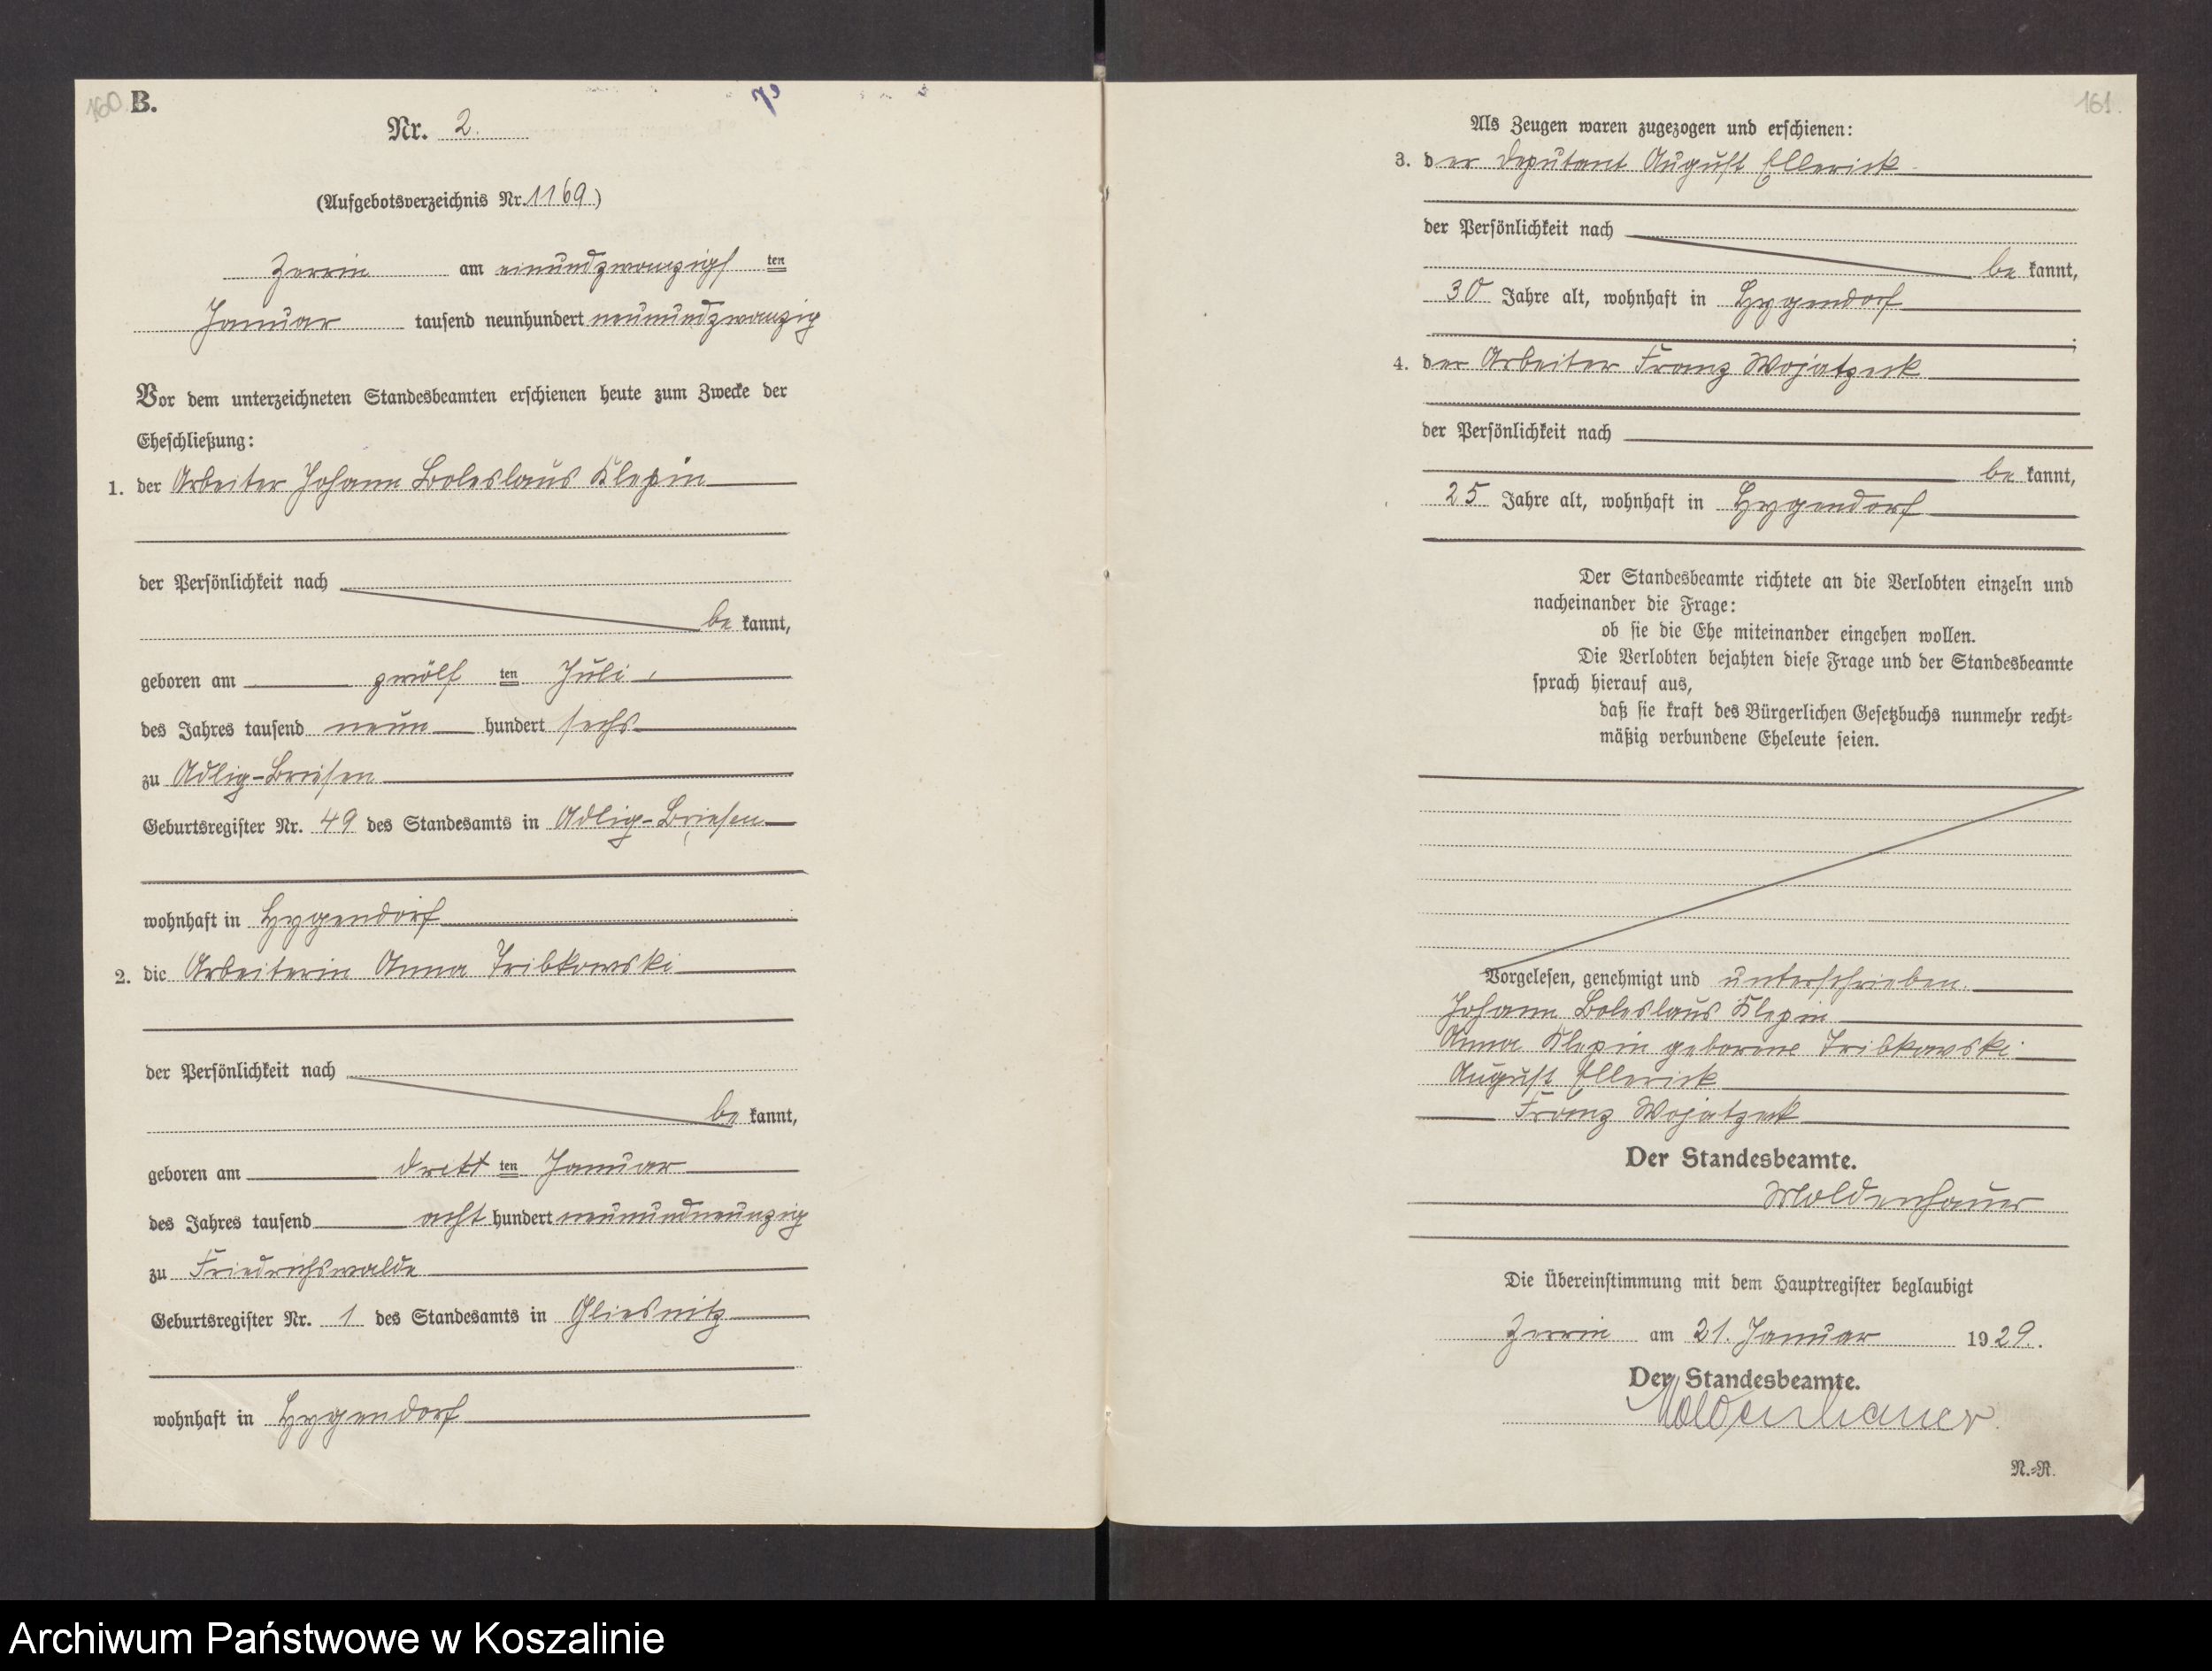 160 B.
Nr. 2.
(Aufgebotsverzeichnis Nr. 1169)
Zerrin am einundzwanzigsten
Januar tausend neunhundert neunundzwanzig
Vor dem unterzeichneten Standesbeamten erschienen heute zum Zwecke der
Eheschließung:
1. der Arbeiter Johann Boleslaus Klepin
der Persönlichkeit nach
be kannt,
geboren am zwölf ten Juli
des Jahres tausend neun hundert sechs
zu Adlig-Briesen
Geburtsregister Nr. 49 des Standesamts in Adlig-Briesen
wohnhaft in Hygendorf
2. die Arbeiterin Anna Tribkowski
der Persönlichkeit nach
be kannt,
geboren am dritt ten Januar
des Jahres tausend acht hundert neunundneunzig
zu Friedrichswalde
Geburtsregister Nr. 1 des Standesamts in Gliesnitz
wohnhaft in Hygendorf
161.
Als Zeugen waren zugezogen und erschienen:
3. der Deputant August Ellerick
der Persönlichkeit nach
be kannt,
30 Jahre alt, wohnhaft in Hygendorf
4. der Arbeiter Franz Wojatzek
der Persönlichkeit nach
be kannt,
25 Jahre alt, wohnhaft in Hygendorf
Der Standesbeamte richtete an die Verlobten einzeln und
nacheinander die Frage:
ob sie die Ehe miteinander eingehen wollen.
Die Verlobten bejahten diese Frage und der Standesbeamte
sprach hierauf aus,
daß sie kraft des Bürgerlichen Gesetzbuchs nunmehr recht-
mäßig verbundene Eheleute seien.
Vorgelesen, genehmigt und unterschrieben.
Johann Boleslaus Klepin
Anna Klepin geborene Tribkowski
August Ellerick
Franz Wojatzek
Der Standesbeamte.
Moldenhauer
Die Übereinstimmung mit dem Hauptregister beglaubigt
Zerrin am 21. Januar 1929.
Der Standesbeamte.
Moldenhauer
N.-R.
Archiwum Państwowe w Koszalinie